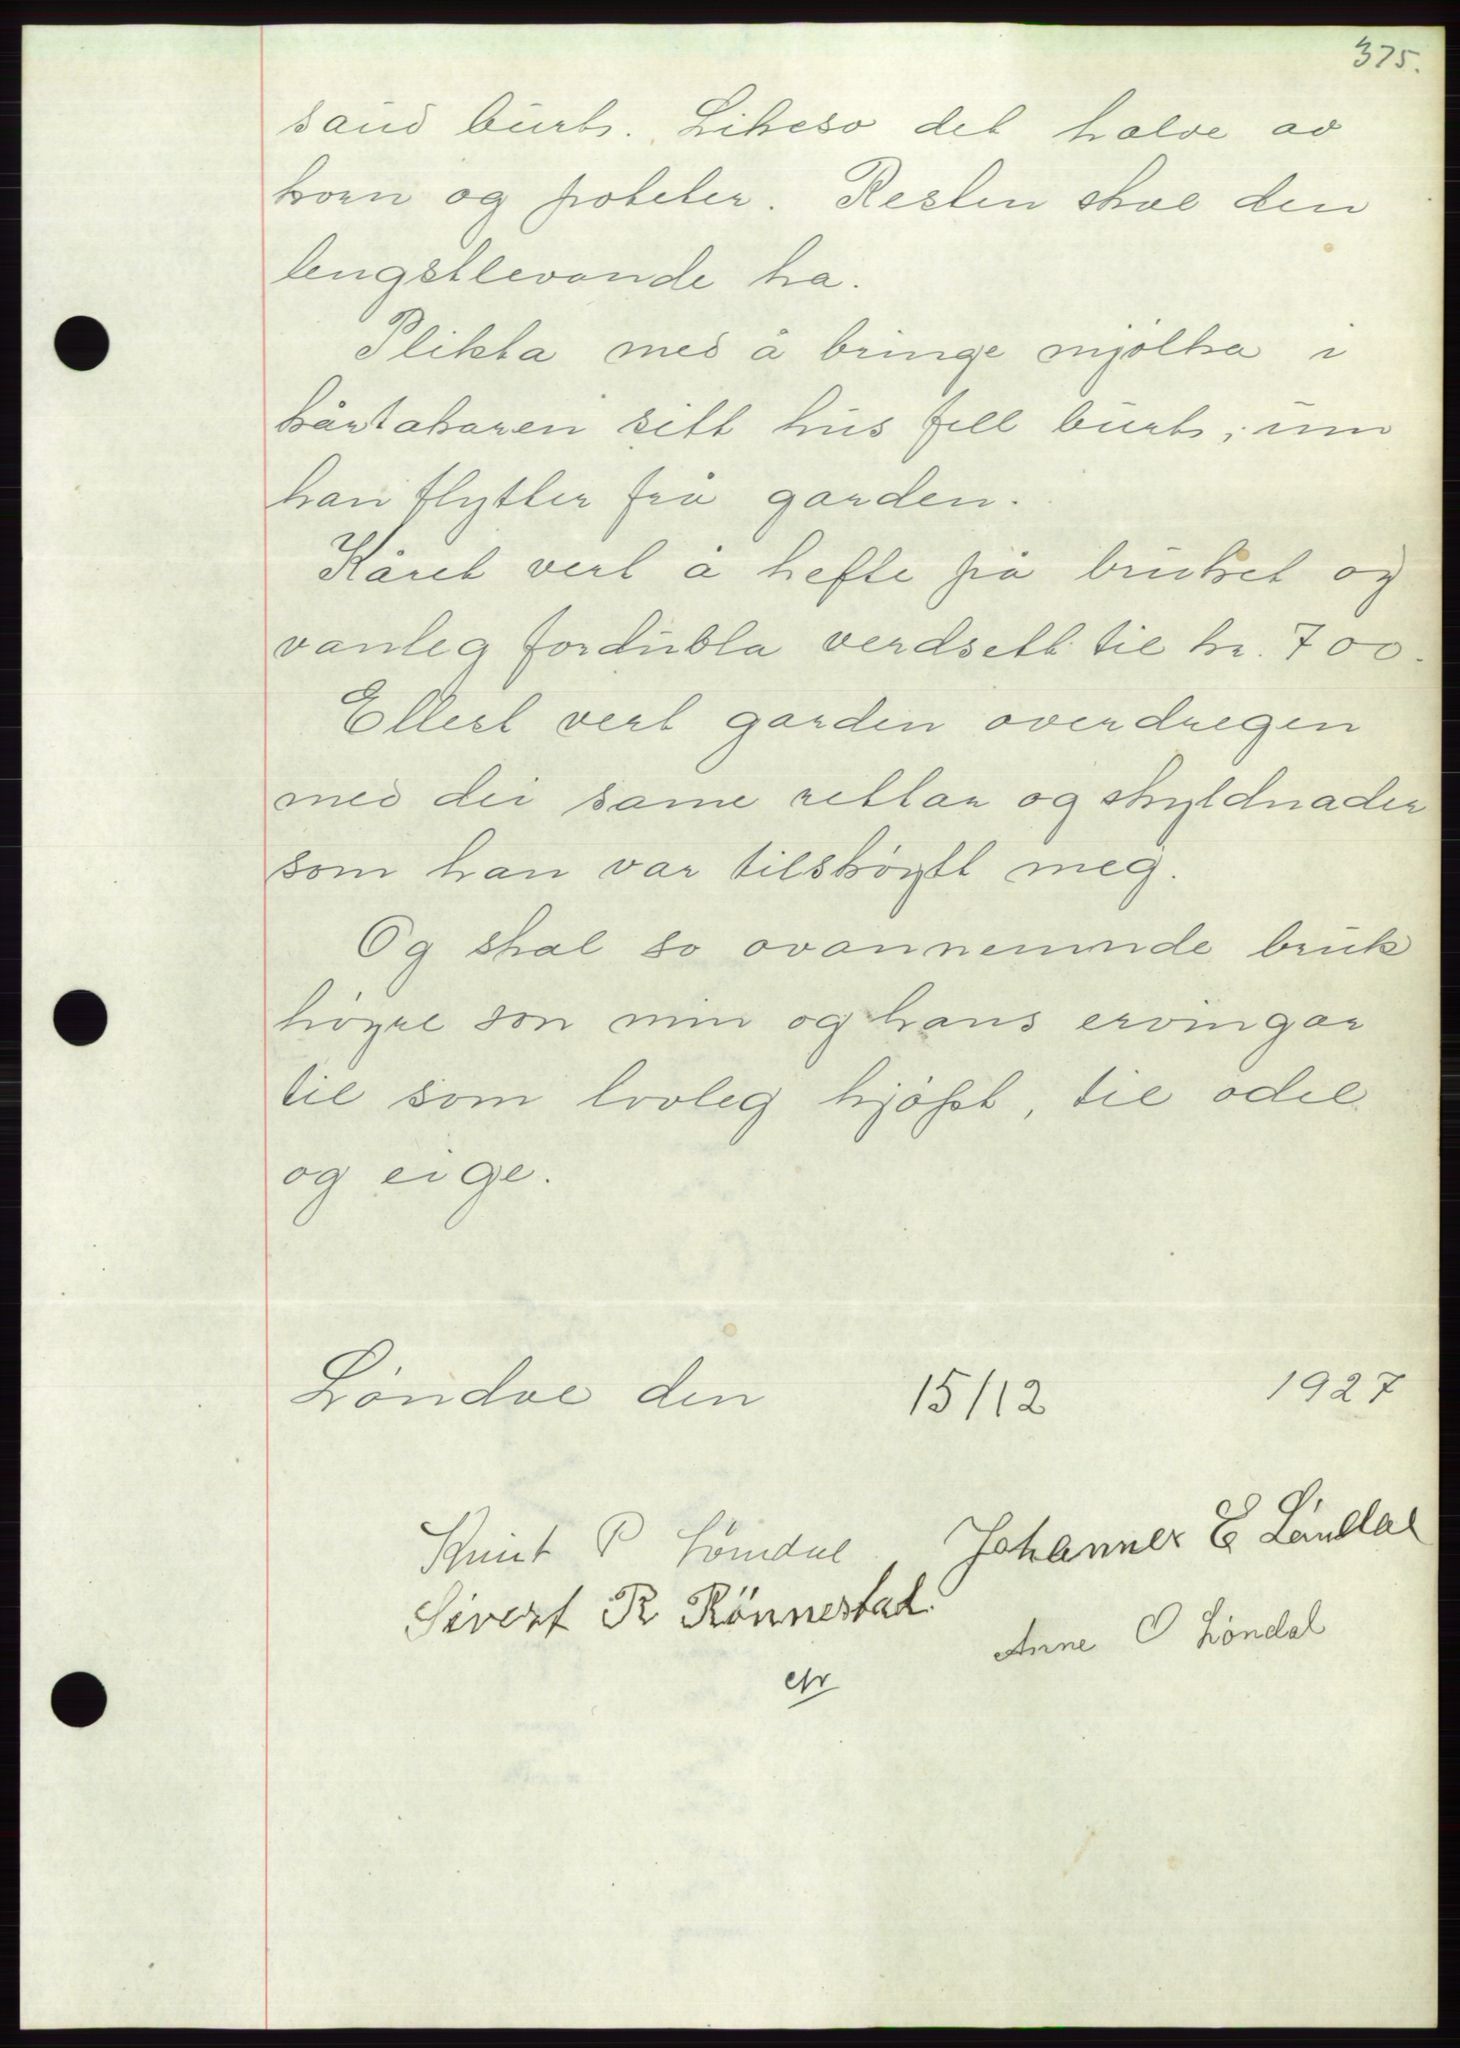 375.
saud burt. Likeso det halve av
korn og poteter. Resten skal den
lengstlevande ha.
Plikta med å bringe mjølka i
kårtakaren sitt hus fell burt, um
han flytter frå garden.
Kåret vert å hefte på bruket og
vanleg fordubla verdsett til kr. 700.
Ellest vert garden overdregen
med dei same rettar og skyldnader
som han var tilskøytt meg.
Og skal so ovannemnde bruk
høyre son min og hans ervingar
til som lovleg kjøpt, til odel
og eige.
Løndal den 15/12 1927
Knut P Løndal Johannes E Løndal
Sivert R Rönnestad.
Anne O Løndal